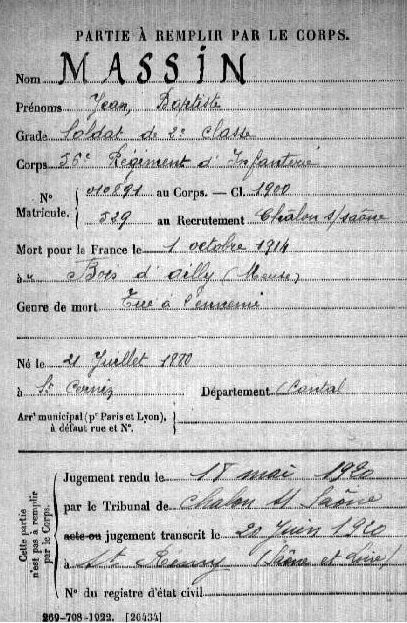 PARTIE À REMPLIR PAR LE CORPS.
Nom MASSIN
Prénoms Jean, Baptiste
Grade Soldat de 2e classe
Corps 56e Régiment d'Infanterie
N° Matricule. 010891 au Corps. — Cl. 1900
529 au Recrutement Chalon s/saône
Mort pour la France le 1 octobre 1914
à Bois d'ailly (Meuse)
Genre de mort Tué à l'ennemi
Né le 21 Juillet 1880
à St Département Cantal
Arrt municipal (pr Paris et Lyon), à défaut rue et N°.
Cette partie n'est pas à remplir par le Corps.
Jugement rendu le 18 mai 1920
par le Tribunal de Chalon s/ Saône
acte ou jugement transcrit le 20 Juin 1920
à St Rémy (Saône et Loire)
N° du registre d'état civil
269-708-1922. [26434]